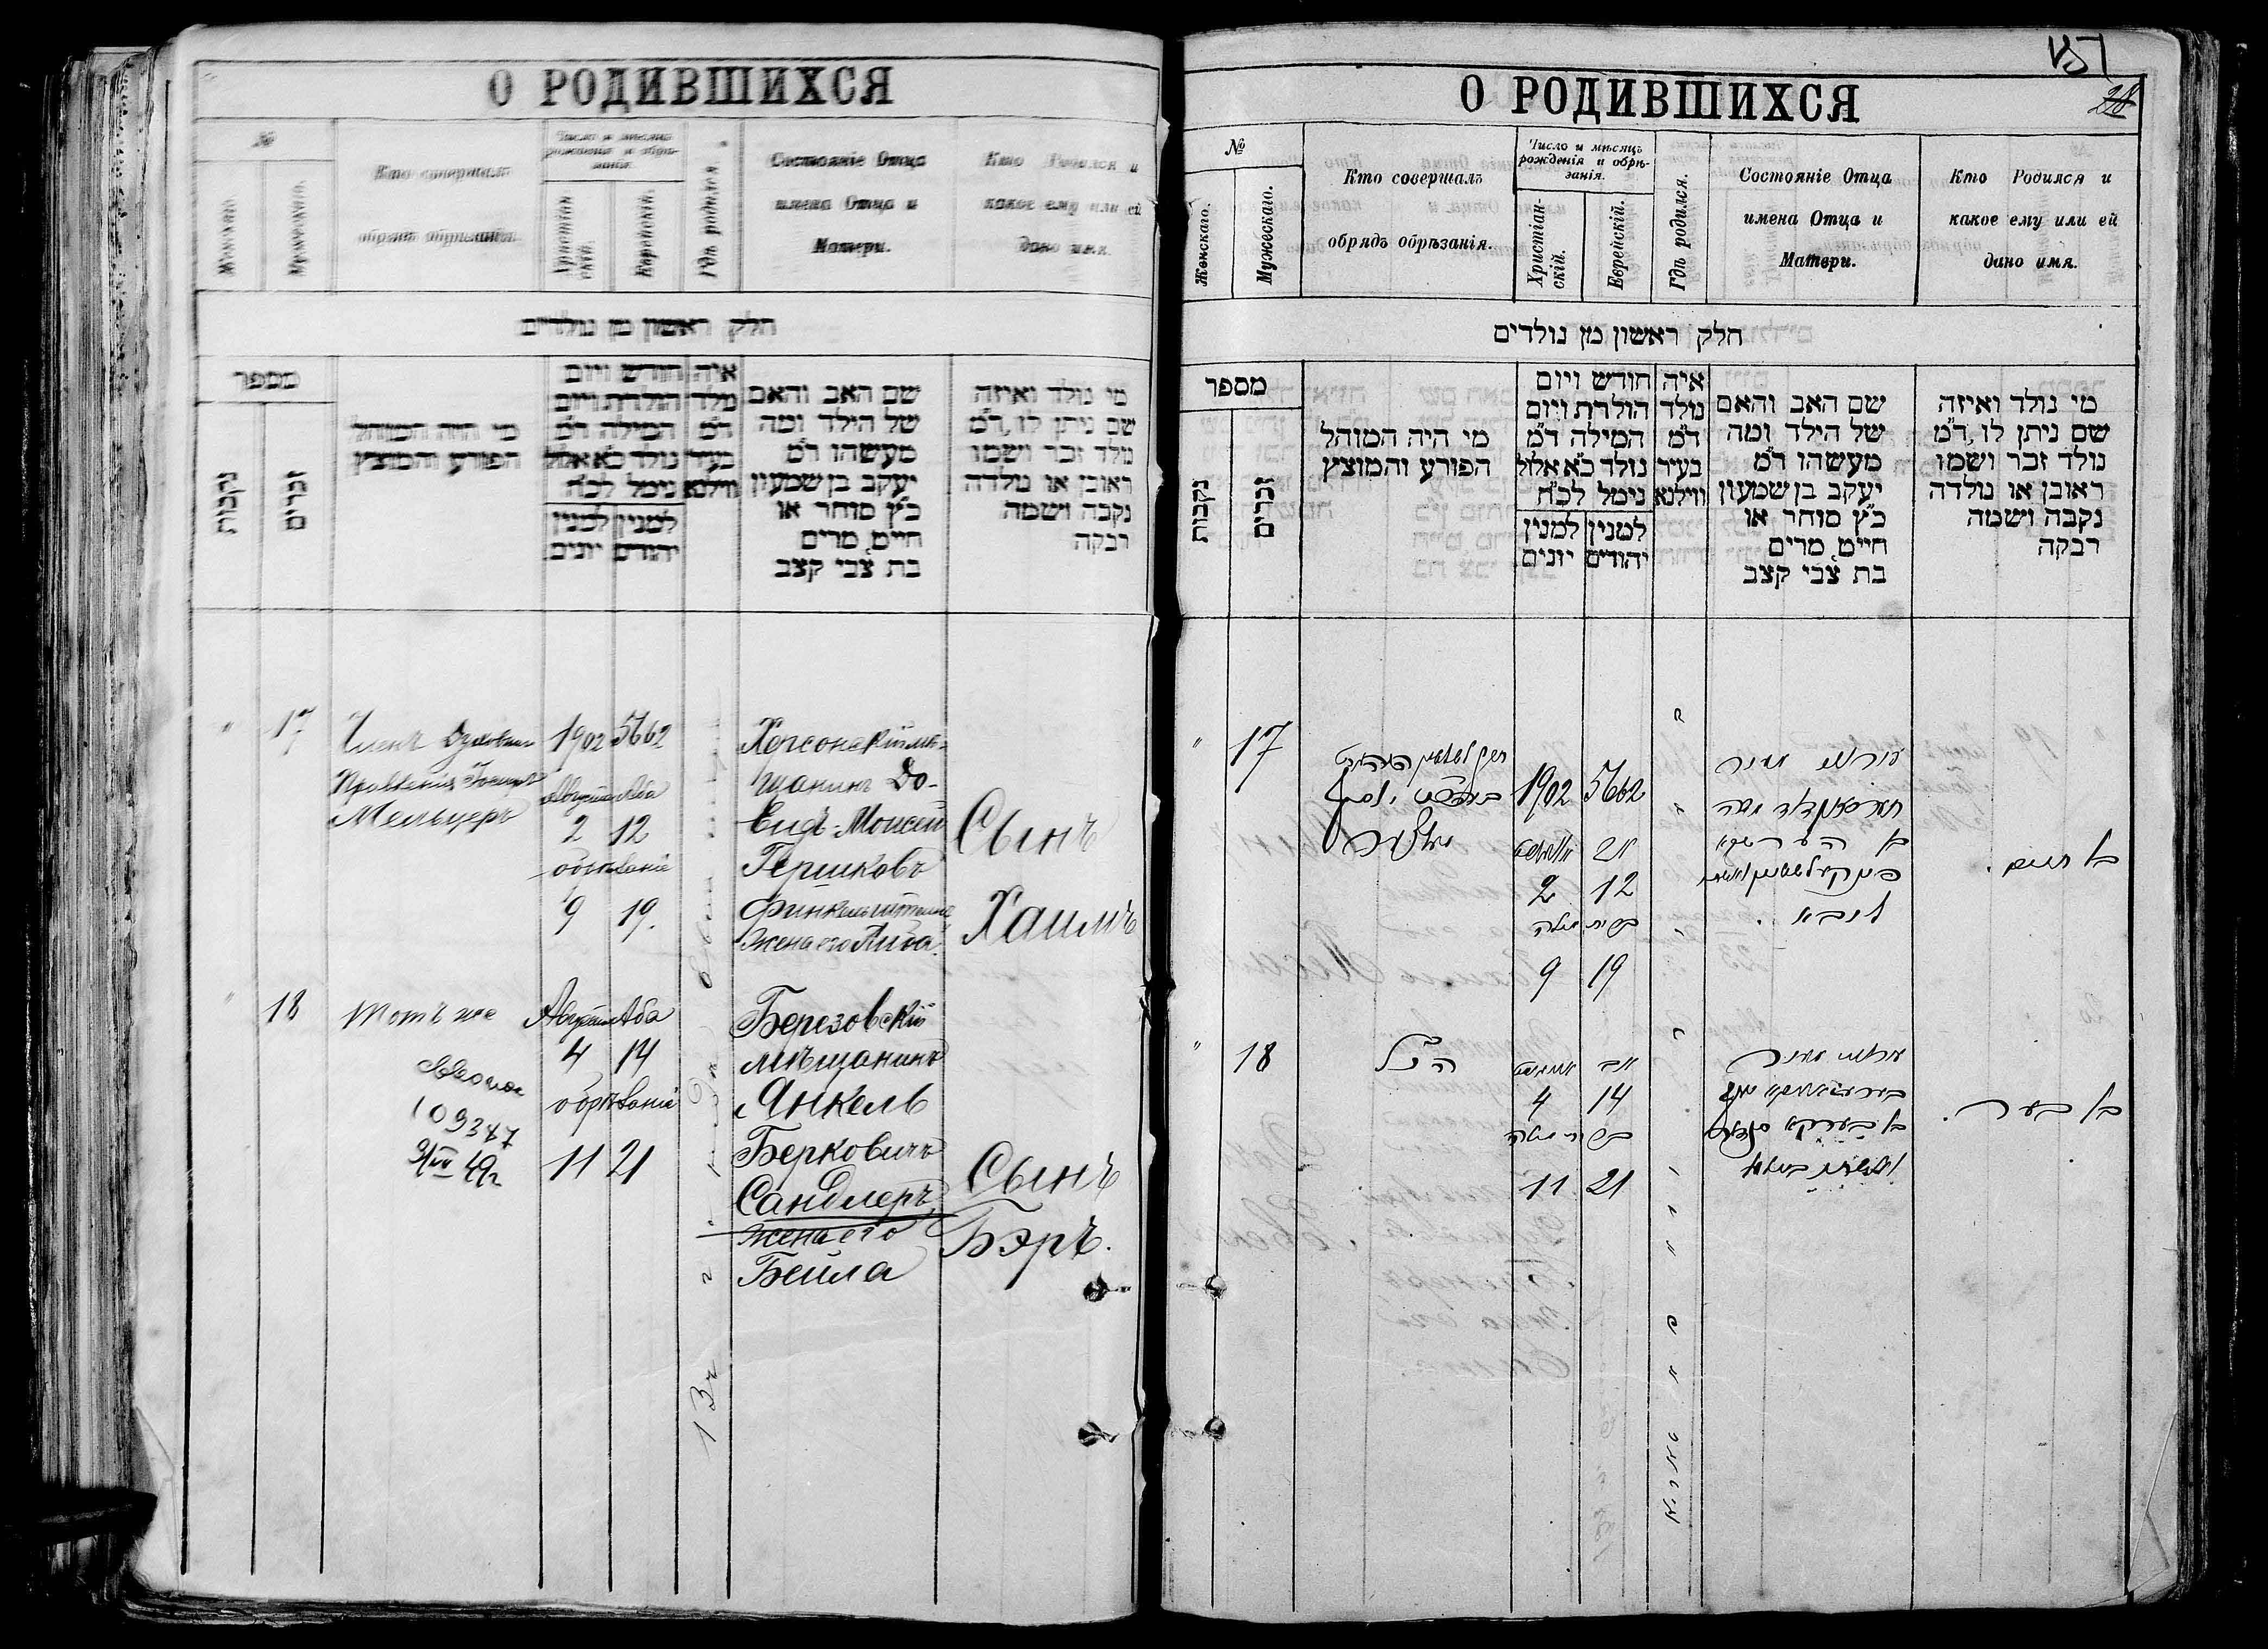 О РОДИВШИХСЯ
№
Женскаго.
Мужескаго.
Кто совершалъ
обрядъ обрѣзанія.
Число и мѣсяцъ
рожденія и обрѣ-
занія.
Христіан-
скій.
Еврейскій.
Гдѣ родился.
Состояніе Отца
имена Отца и
Матери.
Кто Родился и
какое ему или ей
дано имя.
חלק ראשון מן נולדים
מספר
נקבות
זכרים
מי היה המוהל
הפורע והמוצץ
חודש ויום
הולדת ויום
המילה ד״מ
נולד כ״א אלול
נימל לכ״ח
למנין
יהודים
למנין
יונים
איה
נולד
ד״מ
בעיר
ווילנא
שם האב והאם
של הילד ומה
מעשהו ד״מ
יעקב בן שמעון
כ״ץ סוחר או
חייט, מרים
בת צבי קצב
מי נולד ואיזה
שם ניתן לו, ד״מ
נולד זכר ושמו
ראובן או נולדה
נקבה ושמה
רבקה
" 17
Членъ Духовнаго
Правленія Іосифъ
Мельцеръ
1902 5662
Августа Аба
2 12
обрѣзанія
9 19.
Херсонскій мѣ-
щанинъ До-
видъ Моисей
Гершковъ
Финкельштейнъ
жена его Люба.
Сынъ
Хаимъ
" 18
Тотъ же
109347
49г
Августа Аба
4 14
обрѣзанія
11 21
Березовскій
мѣщанинъ
Янкель
Берковичъ
Сандлеръ
жена его
Бейла
Сынъ
Бэръ.
О РОДИВШИХСЯ
28
№
Женскаго.
Мужескаго.
Кто совершалъ
обрядъ обрѣзанія.
Число и мѣсяцъ
рожденія и обрѣ-
занія.
Христіан-
скій.
Еврейскій.
Гдѣ родился.
Состояніе Отца
имена Отца и
Матери.
Кто Родился и
какое ему или ей
дано имя.
חלק ראשון מן נולדים
מספר
נקבות
זכרים
מי היה המוהל
הפורע והמוצץ
חודש ויום
הולדת ויום
המילה ד״מ
נולד כ״א אלול
נימל לכ״ח
למנין
יהודים
למנין
יונים
איה
נולד
ד״מ
בעיר
ווילנא
שם האב והאם
של הילד ומה
מעשהו ד״מ
יעקב בן שמעון
כ״ץ סוחר או
חייט, מרים
בת צבי קצב
מי נולד ואיזה
שם ניתן לו, ד״מ
נולד זכר ושמו
ראובן או נולדה
נקבה ושמה
רבקה
" 17
1902 5662
אויגוסט אב
2 12
ברית מילה
9 19
דוד משה
בן הערשקא
פינקעלשטיין
ליבא.
בן חיים.
" 18
הנ״ל
אויגוסט אב
4 14
ברית מילה
11 21
בן בערקא
בן בער.